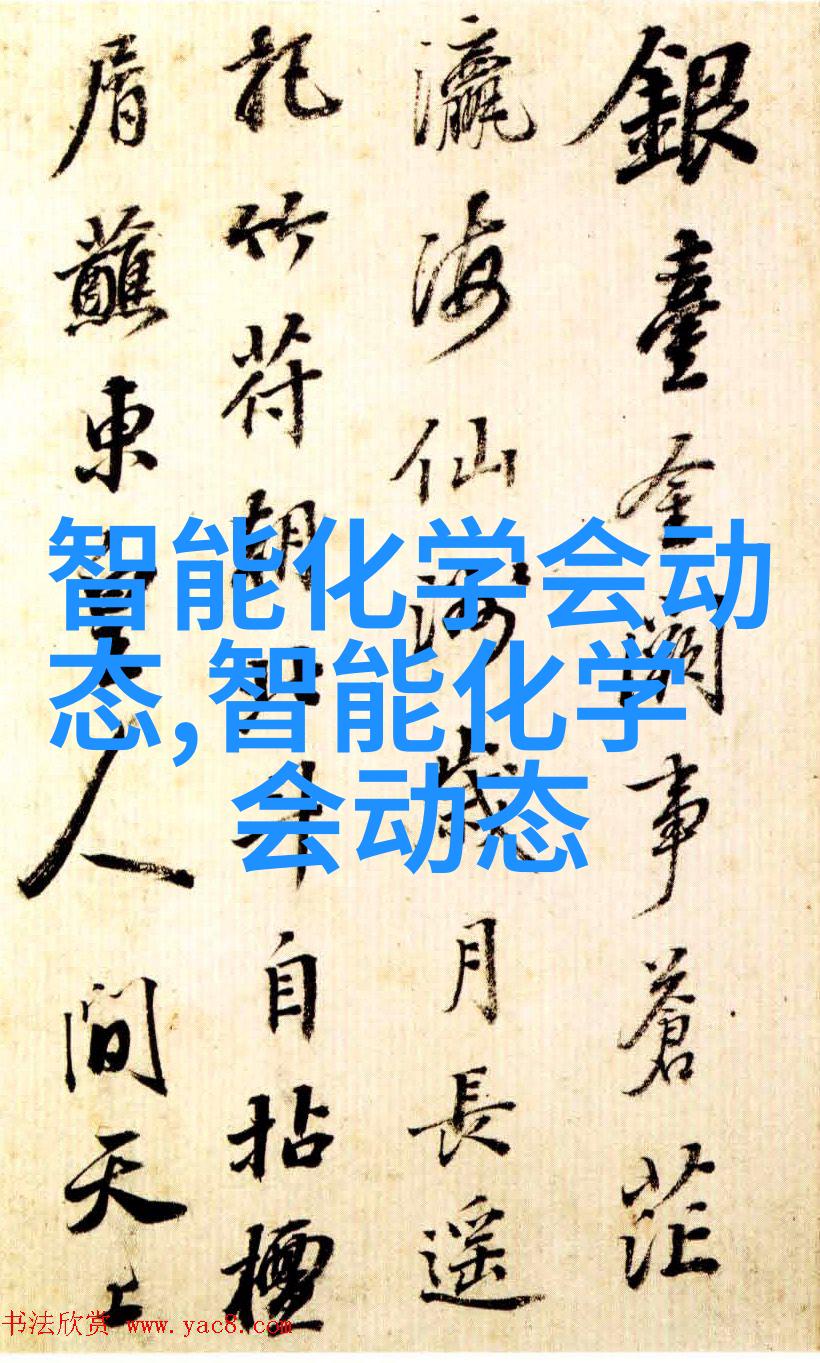 銀臺金闕事蒼茫
瀛海仙洲歲月長遥
記竹符朝北斗自拈檀
屑蘸東皇人間天上
智能化学会动
态,智能化学
会动态
书法欣赏 www.yac8.com